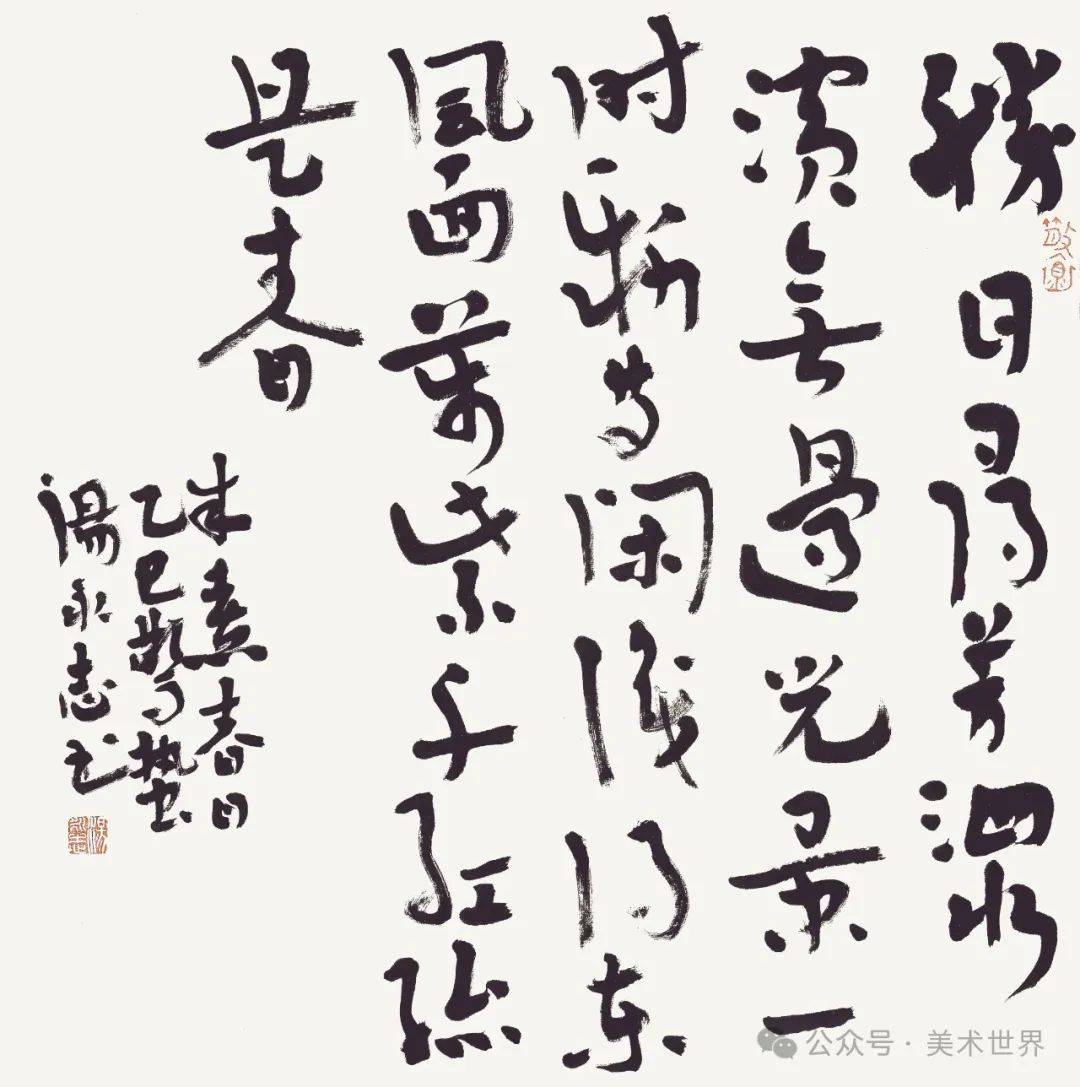 勝日尋芳泗水
濱無邊光景一
時新等閑識得東
風面萬紫千紅總
是春
朱熹春日
乙巳驚蟄
湯永志書
公众号 · 美术世界